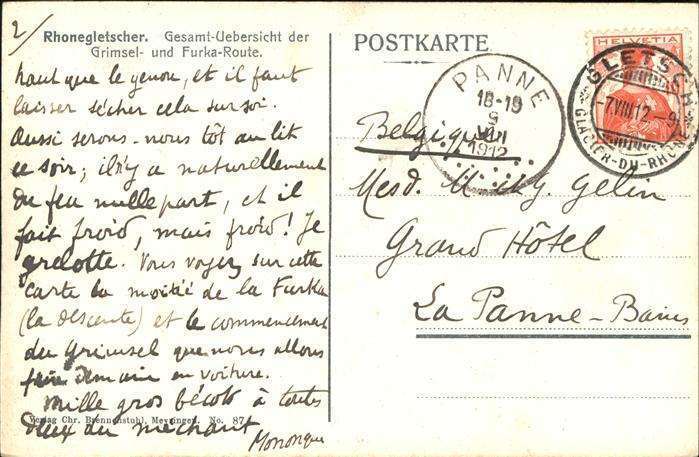 2/
Rhonegletscher. Gesamt-Uebersicht der
Grimsel- und Furka-Route.
haut que le genou, et il faut
laisser sécher cela sur soi.
Aussi serons-nous tôt au lit
ce soir; il n'y a naturellement
du feu nulle part, et il
fait froid, mais froid! Je
grelotte. Vous voyez sur cette
carte la moitié de la Furka
(la descente) et le commencement
du Grimsel que nous allons
faire demain en voiture.
Mille gros bécots à toutes
deux du méchant
Verlag Chr. Brennenstuhl, Meyringen. No. 874
POSTKARTE.
HELVETIA
GLETSCH
-7.VIII.12.-9
GLACIER-DU-RHONE
PANNE
18-19
1912
Belgique
Mesd. M. Gelin
Grand Hôtel
La Panne-Bains